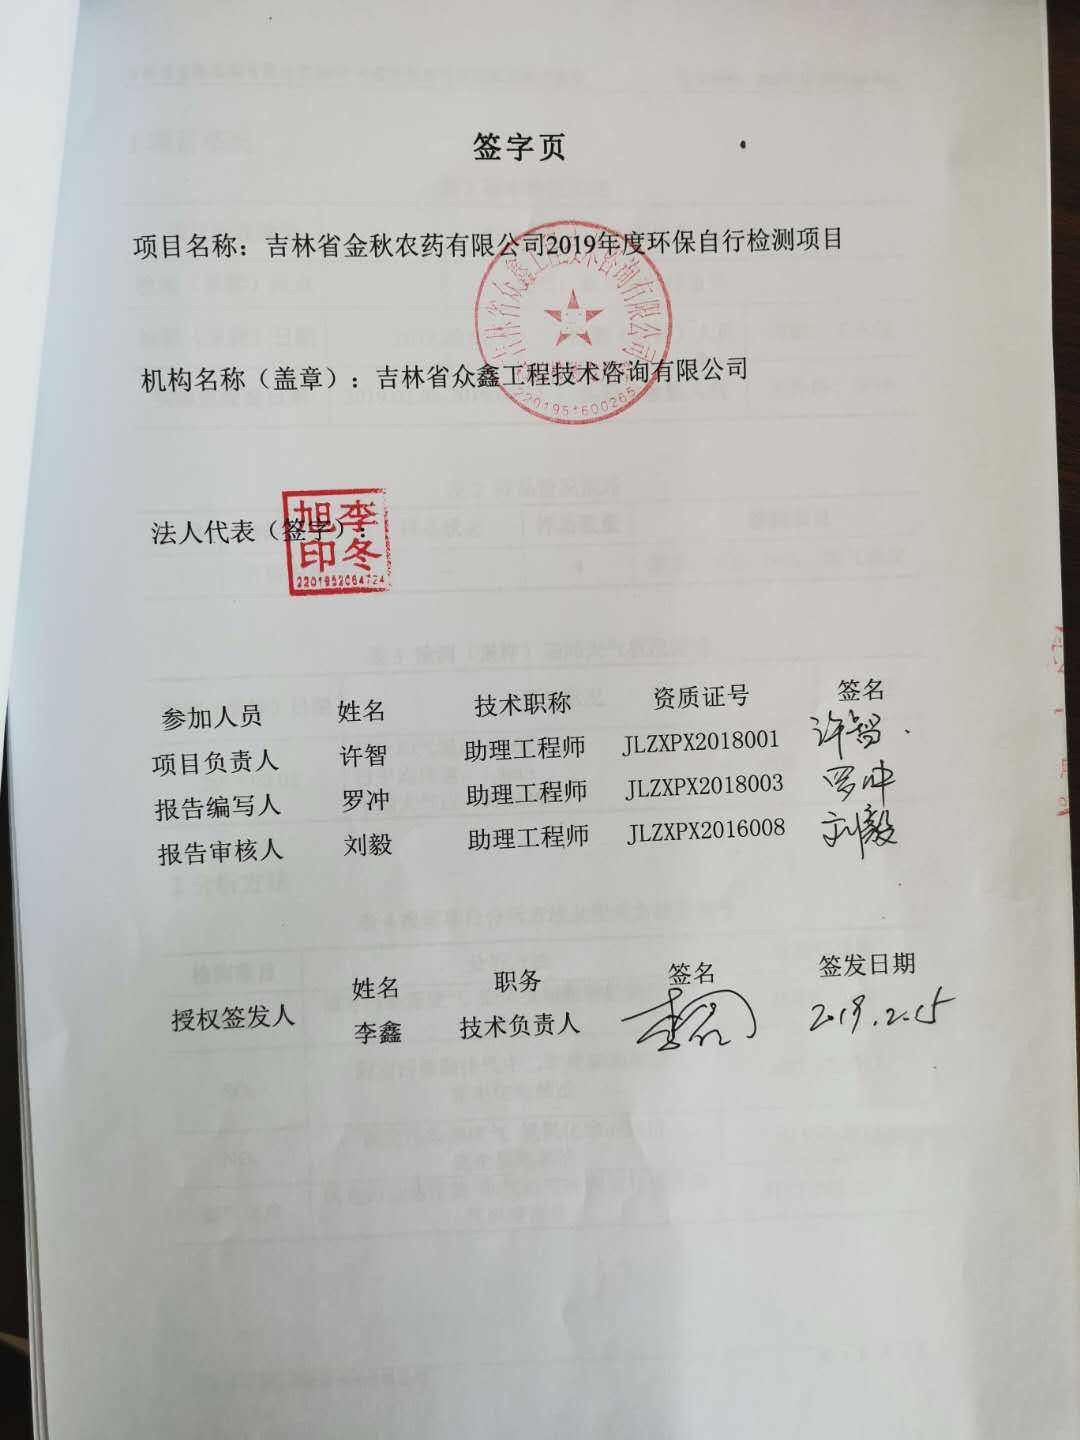 签字页
项目名称：吉林省金秋农药有限公司2019年度环保自行检测项目
吉林省众鑫工程技术咨询有限公司
机构名称（盖章）：吉林省众鑫工程技术咨询有限公司
2201951600265
法人代表（签字）：
李冬旭印
2201952064724
参加人员 姓名 技术职称 资质证号 签名
项目负责人 许智 助理工程师 JLZXPX2018001 许智
报告编写人 罗冲 助理工程师 JLZXPX2018003 罗冲
报告审核人 刘毅 助理工程师 JLZXPX2016008 刘毅
姓名 职务 签名 签发日期
授权签发人 李鑫 技术负责人 李鑫 2019.2.15